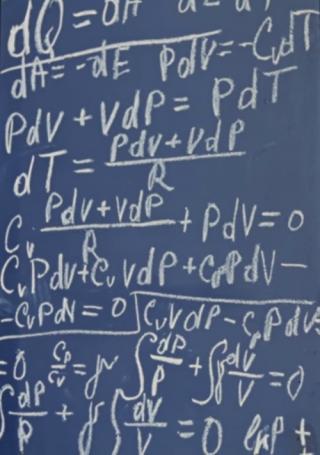 dQ = dA
dA = -dE PdV = -CvdT
PdV + VdP = PdT
dT = PdV+VdP / R
Cv PdV+VdP / R + PdV = 0
CvPdV+CvVdP+CpPdV -
-CvPdV = 0 CvVdP - CpPdV=
=0 Cp/Cv = γ ∫dP/P + ∫γ dV/V = 0
∫dP/P + γ∫dV/V = 0 lnP +